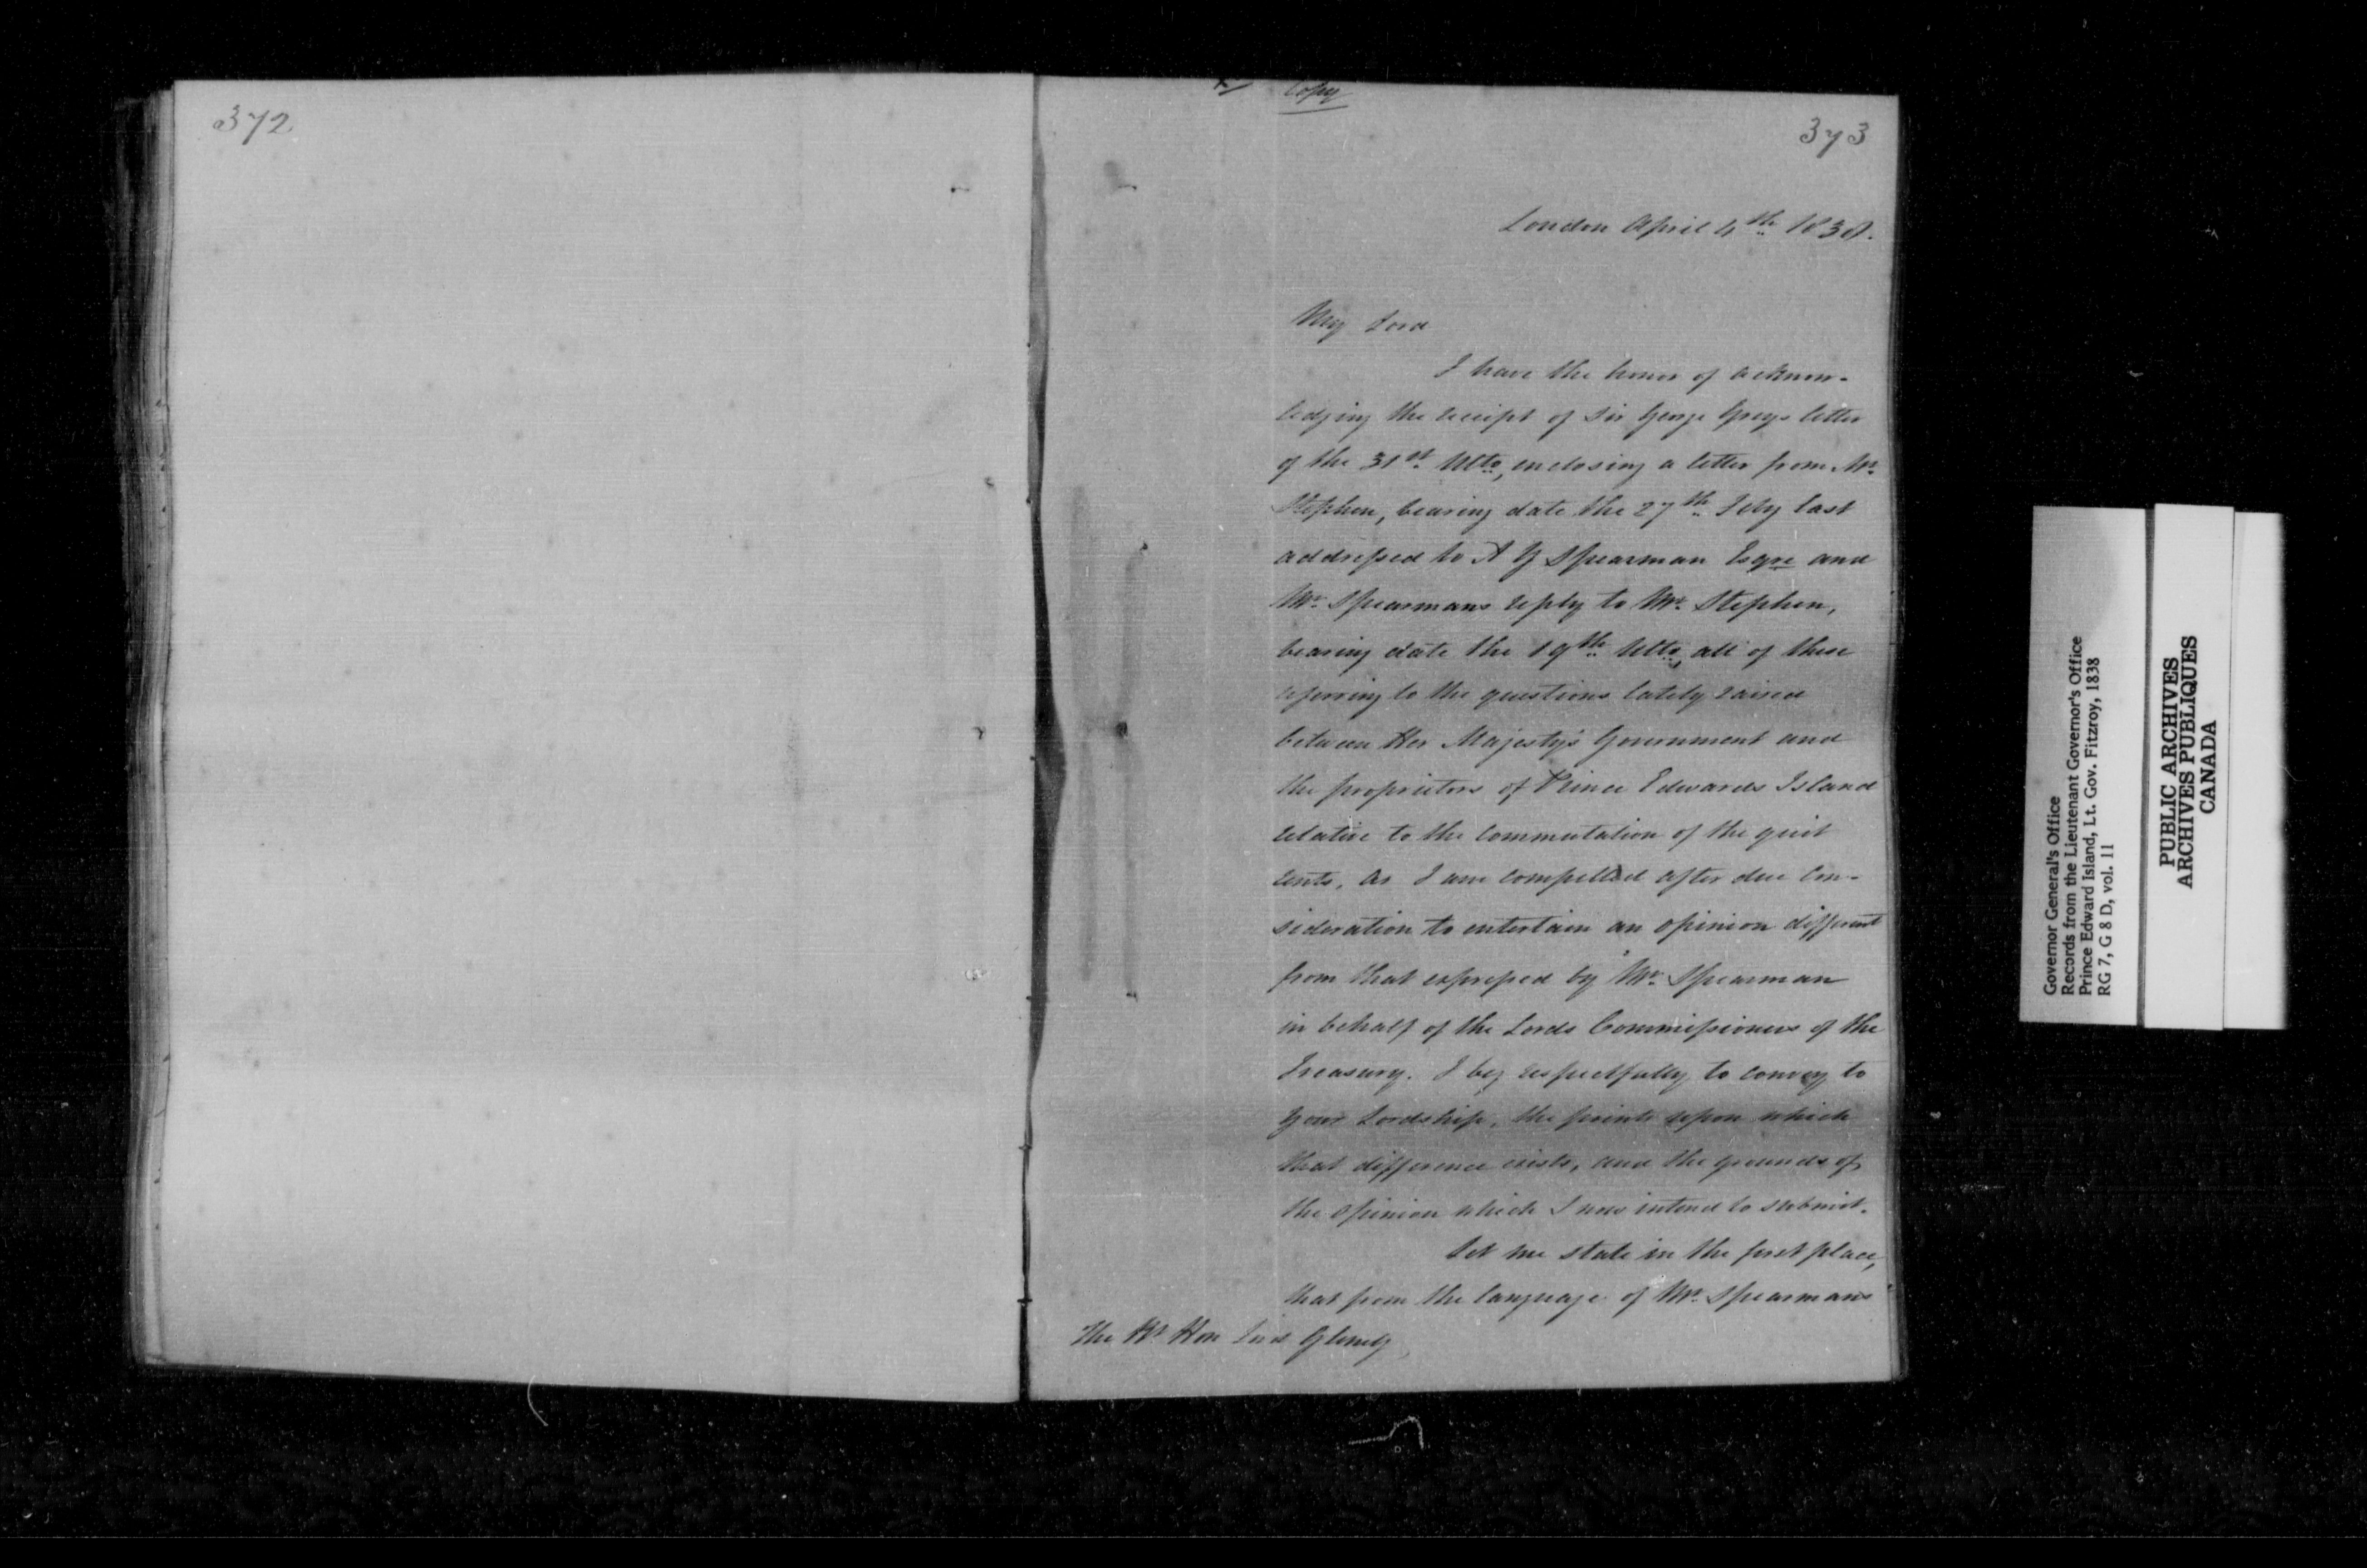 372
Copy
373
London April 4th 1838.
My Lord
I have the honor of acknow-
ledging the receipt of Sir George Greys letter
of the 31st Ulto, inclosing a letter from Mr
Stephen, bearing date the 27th Feby last
addressed to A Y Spearman Esqre and
Mr Spearmans reply to Mr Stephen,
bearing date the 19th Ulto, all of these
referring to the questions lately raised
between Her Majesty's Government and
the proprietors of Prince Edwards Island
relative to the commutation of the quit
rents, As I am compelled after due con-
sideration to entertain an opinion different
from that expressed by Mr Spearman
in behalf of the Lords Commissioners of the
Treasury. I beg respectfully to convey to
your Lordship, the points upon which
that difference exists, and the grounds of
the opinion which I now intend to submit.
Let me state in the first place,
that from the language of Mr Spearmans
The Rt Hon Lord Glenelg
Governor General's Office
Records from the Lieutenant Governor's Office
Prince Edward Island, Lt. Gov. Fitzroy, 1838
RG 7, G 8 D, vol. 11
PUBLIC ARCHIVES
ARCHIVES PUBLIQUES
CANADA